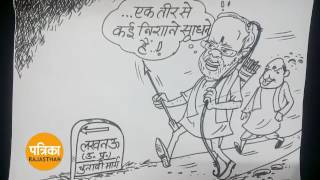 ...एक तीर से
कई निशाने साधने
हैं..!
लखनऊ
(उ. प्र.)
चुनावी मार्ग
पत्रिका
RAJASTHAN